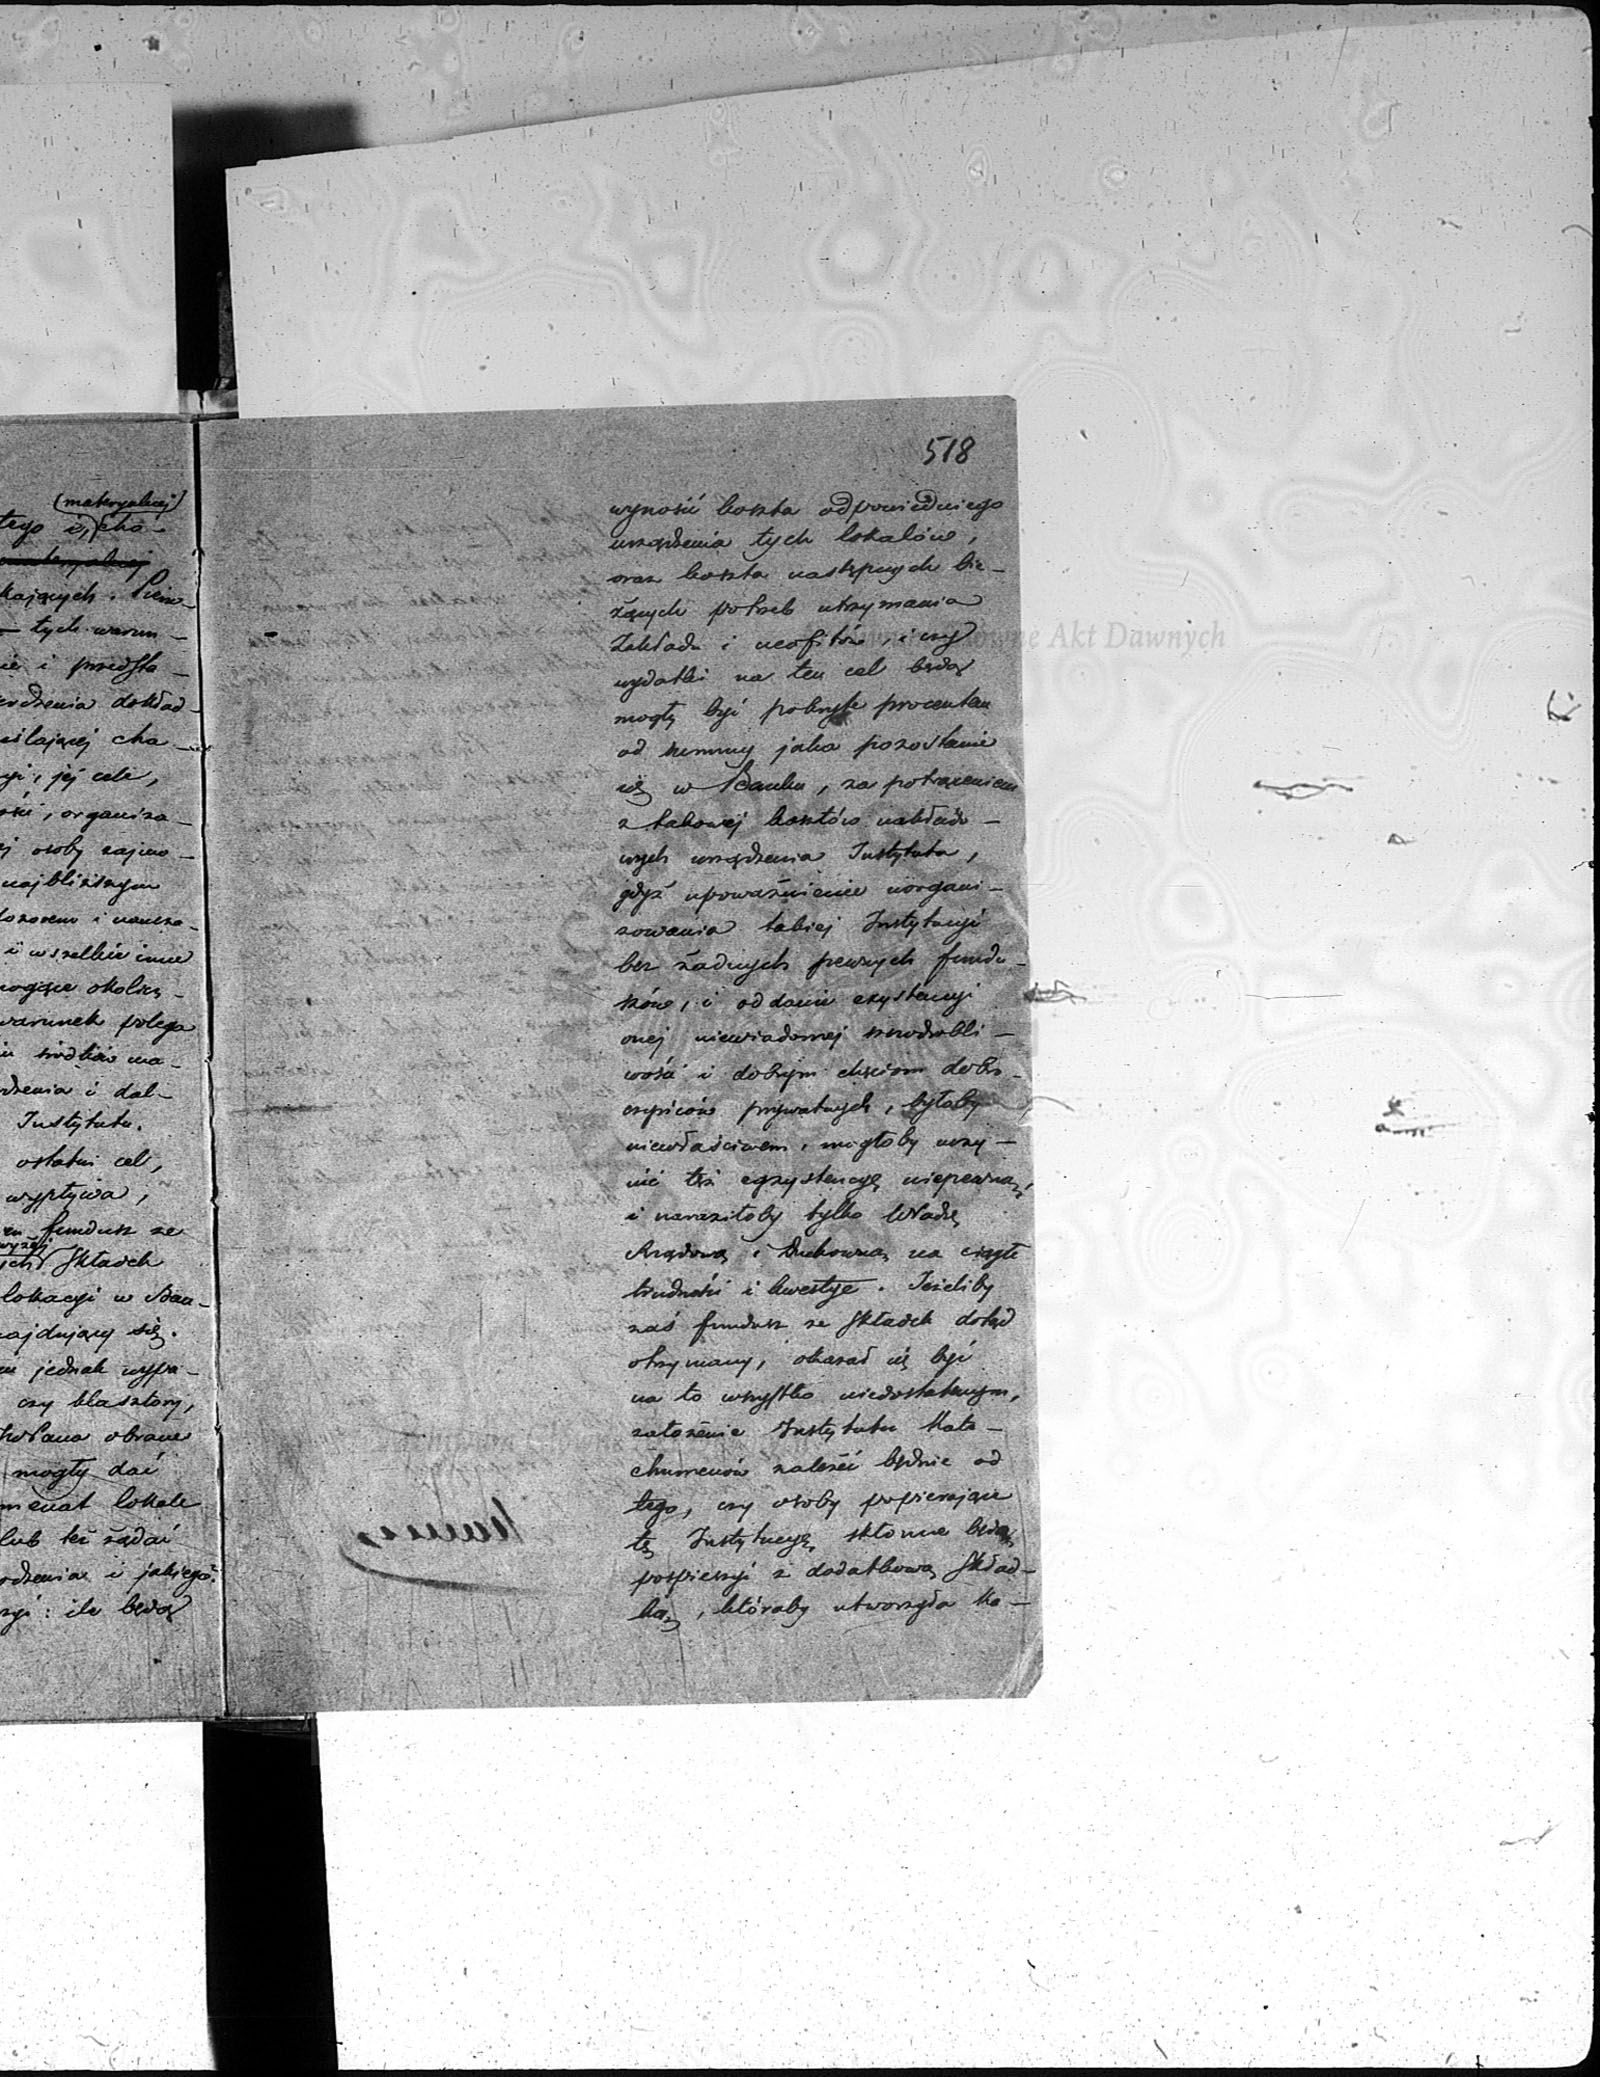 (materyalnej)
tego i, cha-
materyalnej
kających. Pierw-
tych warun-
ie i przedsta-
dzenia dokład-
cha-
jej cele,
organiza-
osoby zajmo-
najbliższym
dozorem i naucza-
i wszelkie inne
mogące okolicz-
warunek polega
środków ma-
dzenia i dal-
Instytutu.
ostatni cel,
wypływa,
fundusz ze
wyżej
Składek
lokacyi w Ban-
najdujący się.
jednak wypa-
czy klasztory,
obrane
mogły dać
lokale
lub też żądać
dzenia i jakiegoś.
: ile będą
518
wynosić koszta odpowiedniego
urządzenia tych lokalów,
oraz koszta następnych bie-
żących potrzeb utrzymania
Zakładu i neofitów, i czy
wydatki na ten cel będą
mogły być pokryte procentem
od summy jaka pozostanie
się w Banku, za potrąceniem
z takowej kosztów nakłado-
wych urządzenia Instytutu,
gdyż upoważnienie uorgani-
zowania takiej Instytucyi
bez żadnych pewnych fundu-
szów, i oddanie exystencyi
onej niewiadomej szczodrobli-
wości i dobrym chęciom dobro-
czyńców prywatnych, byłoby
niewłaściwem, mogłoby uczy-
nić też egzystencyę niepewną,
i naraziłoby tylko Władzę
Rządową i Duchowną na ciągłe
trudności i kwestye. Jeżeliby
zaś fundusz ze Składek dotąd
otrzymany, okazał się być
na to wszystko niedostatecznym,
założenie Instytutu Kate-
chumenów zależeć będzie od
tego, czy osoby popierające
tę Instytucyę, skłonne będą
pospieszyć z dodatkową Skład-
ką, któraby utworzyła Ka-